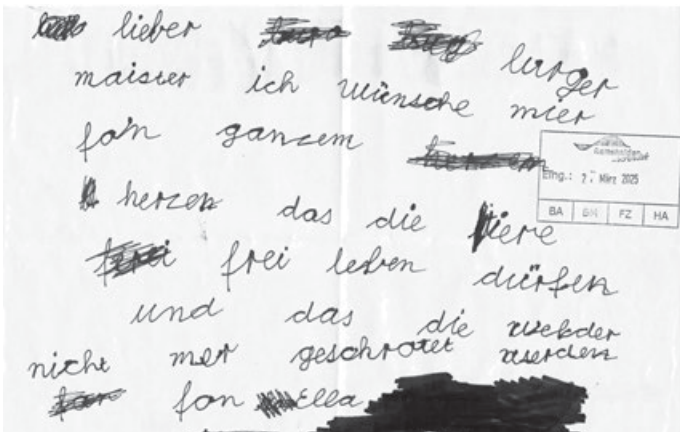 lieber burger
maister ich wünsche mier
fon ganzem
herzen das die tiere
frei leben dürfen
und das die welder
nicht mer geschrotet werden
fon Ella
Eing.: 2. März 2025
BA BH FZ HA